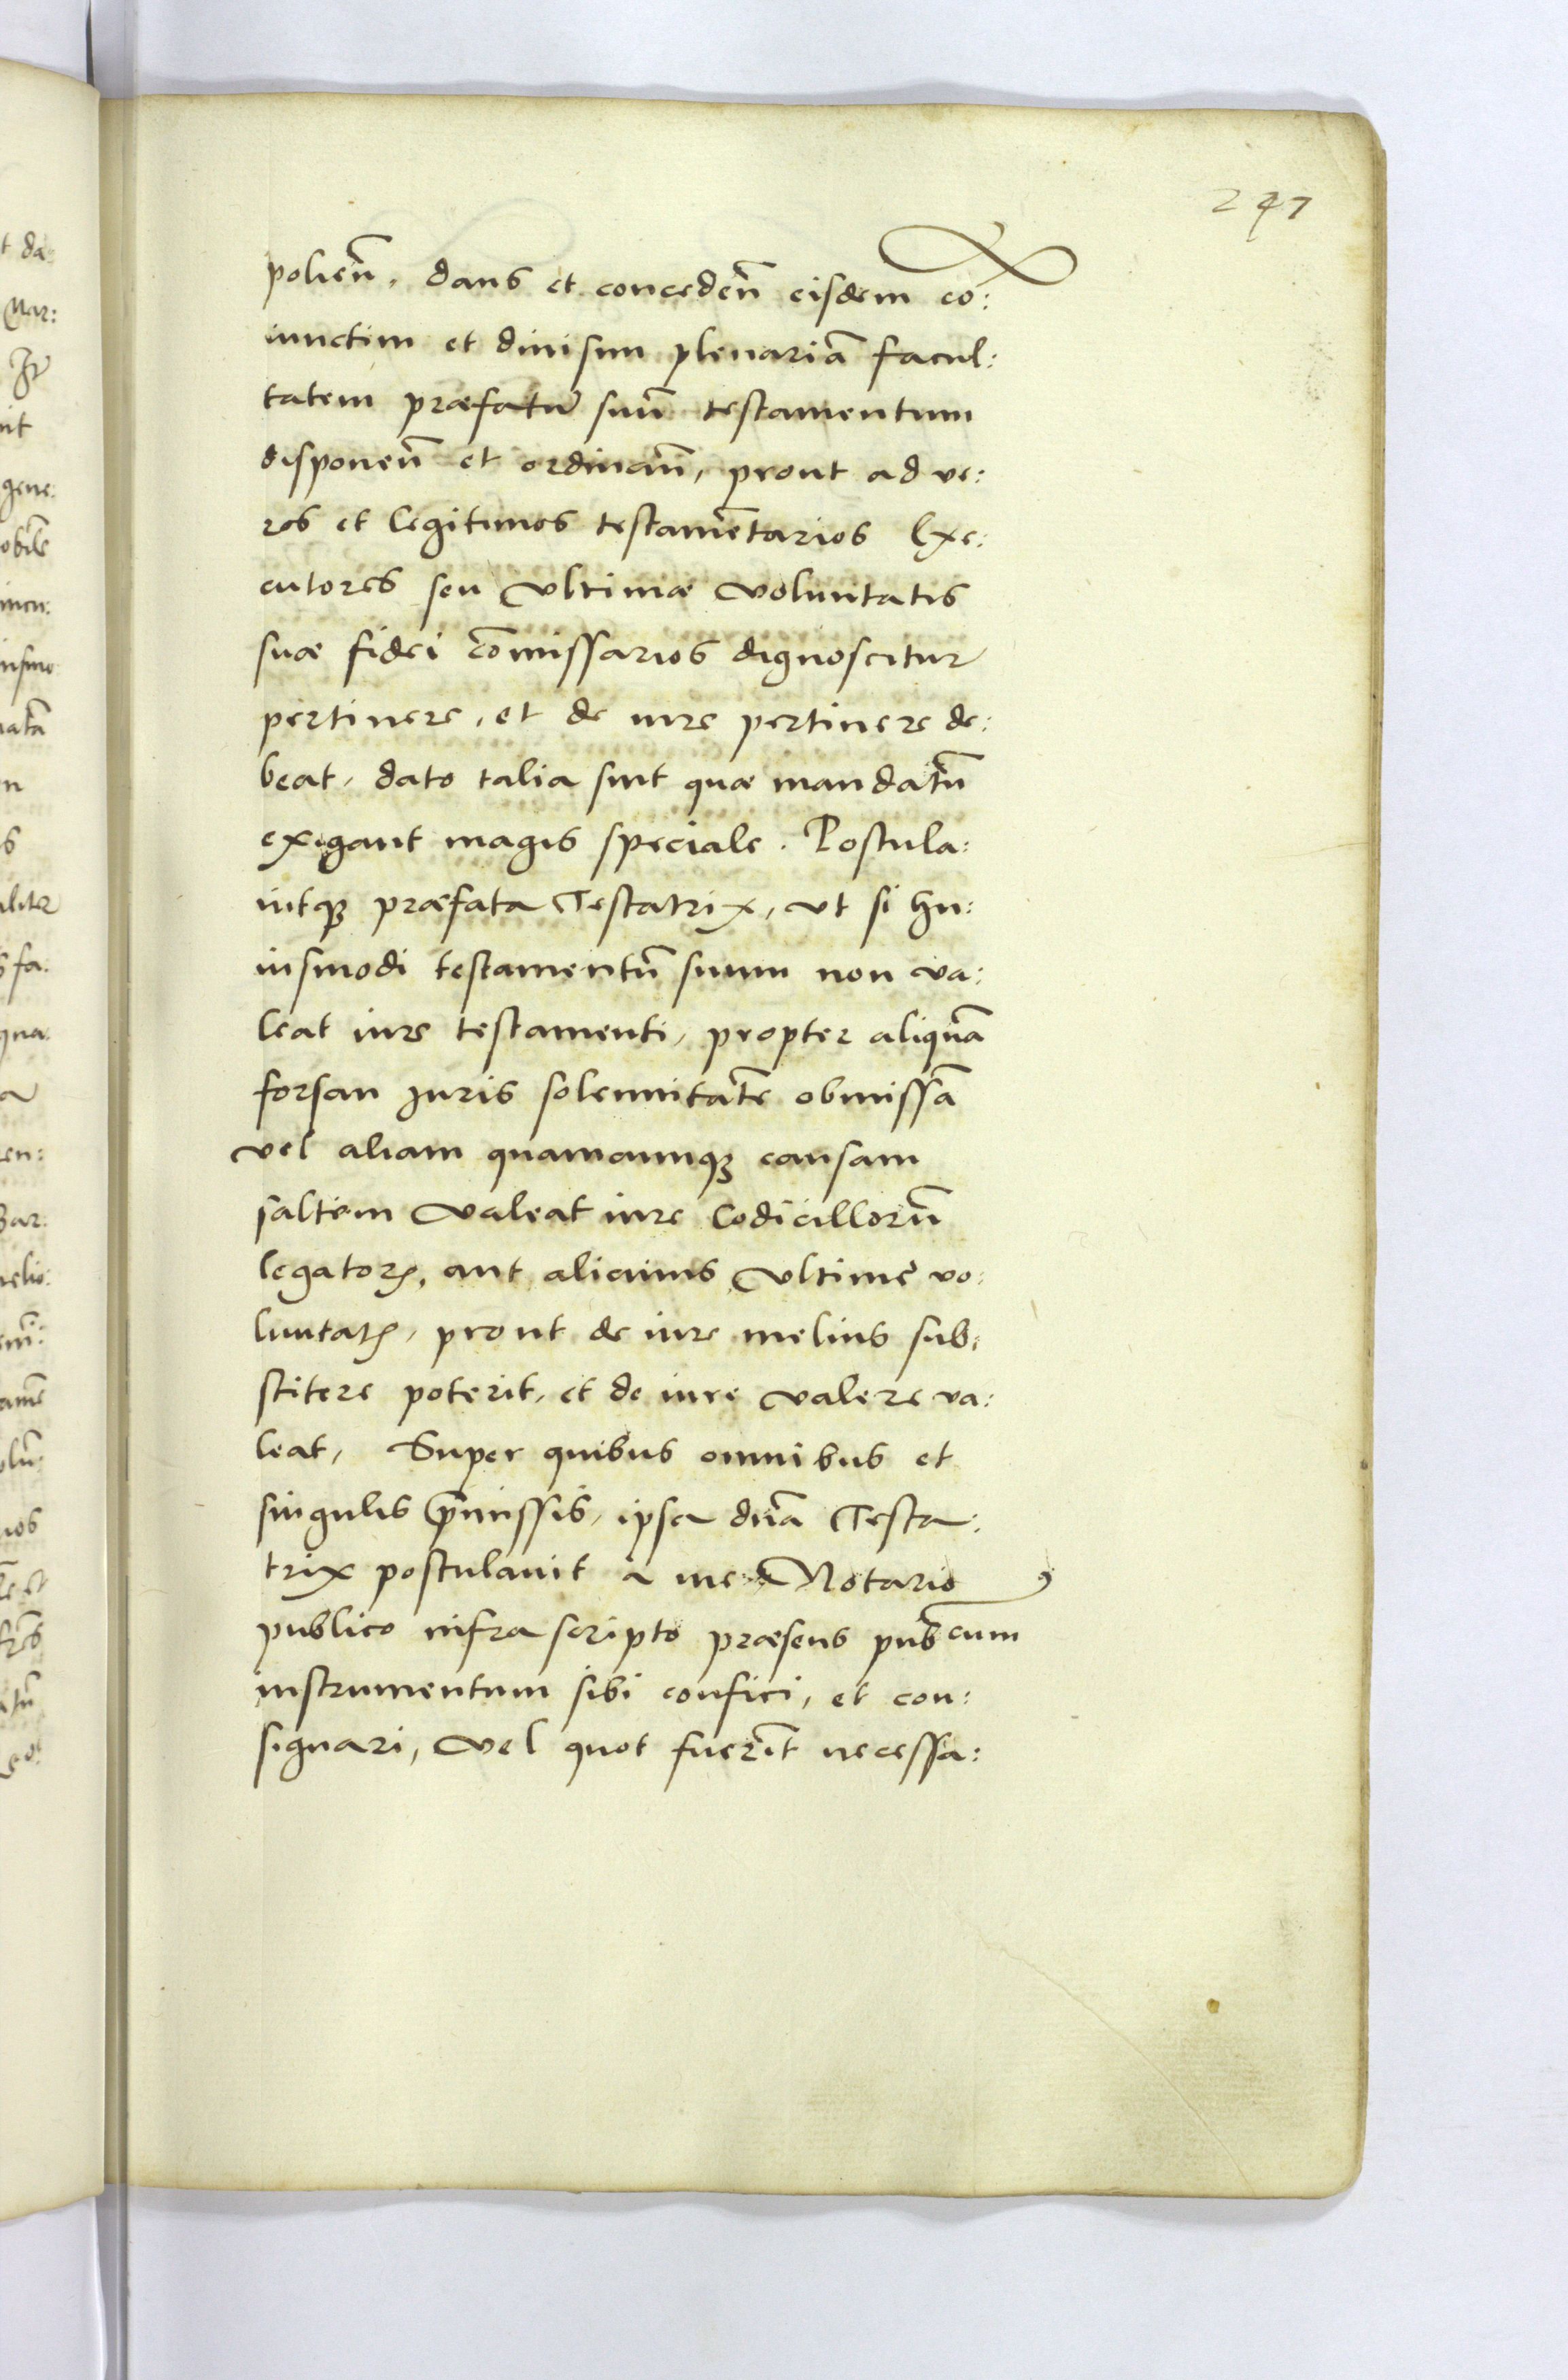 247
polień, dans et concedeñ eisdem cō:
iunctim et diuisim plenariā facul:
tatem præfatū suū testamentum
disponeñ et ordinań, prout ad ve:
ros et legitimos testamētarios Exe:
cutores seu Vltimæ voluntatis
suæ fidei cōmissarios dignoscitur
pertinere, et de iure pertinere de:
beat, dato talia sint quæ mandatū
exigant magis speciale. Postula:
uitq₃ præfata Testatrix, vt si hu:
iusmodi testamentū suum non va:
leat iure testamenti, propter aliquā
forsan Juris solennitatē obmissā
vel aliam quamcumq₃ causam
saltem valeat iure Codicillorū
legatorꝝ, aut alicuius Vltimę vo:
luntatꝭ, prout de iure melius sub:
stitere poterit, et de iure valere va:
leat, Super quibus omnibus et
singulis p̄missis, ipsa dn̄a Testa:
trix postulauit a me Notario
publico infra scripto præsens pub͞cum
instrumentum sibi confici, et con:
signari, Vel quot fuerīt necessa: